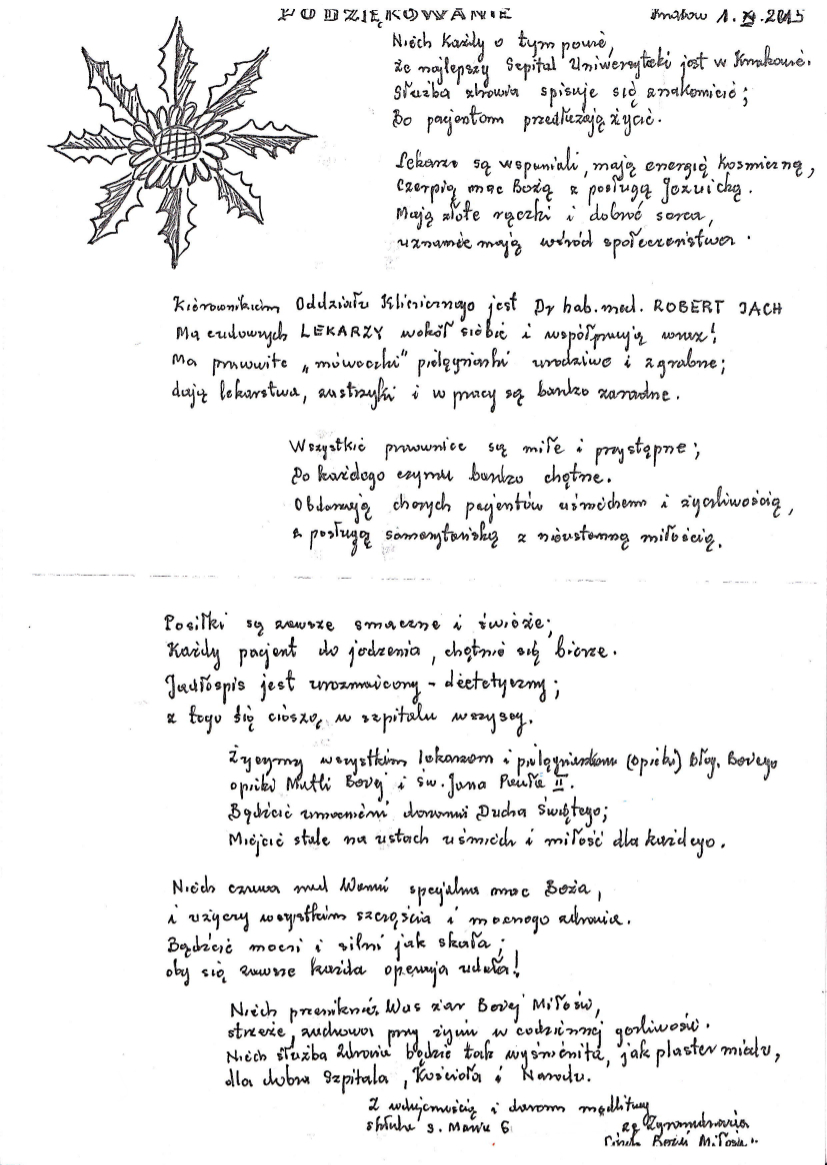 PODZIĘKOWANIE
Kraków 1. XI. 2015
Niech Każdy o tym powie,
że najlepszy Szpital Uniwersytecki jest w Krakowie.
Służba zdrowia spisuje się znakomicie;
Bo pacjentom przedłużają życie.
Lekarze są wspaniali, mają energię Kosmiczną,
Czerpią moc Bożą z posługą Jezuicką.
Mają złote rączki i dobre serca,
uznanie mają wśród społeczeństwa.
Kierownikiem Oddziału Klinicznego jest Dr hab. med. ROBERT JACH
Ma cudownych LEKARZY wokół siebie i współpracują wraz!
Ma prawowite „mróweczki" pielęgniarki urodziwe i zgrabne;
dają lekarstwa, zastrzyki i w pracy są bardzo zaradne.
Wszystkie pracownice są miłe i przystępne;
Do każdego czynu bardzo chętne.
Obdarzają chorych pacjentów uśmiechem i życzliwością,
a posługą samarytańską z nieustanną miłością.
Posiłki są zawsze smaczne i świeże;
Każdy pacjent do jedzenia, chętnie się bierze.
Jadłospis jest urozmaicony - dietetyczny;
z tego się cieszą, w szpitalu wszyscy.
Życzymy wszystkim lekarzom i pielęgniarkom (opieki) Błog. Bożego
opieki Matki Bożej i św. Jana Pawła II.
Bądźcie umocnieni darami Ducha Świętego;
Miejcie stale na ustach uśmiech i miłość dla każdego.
Niech czuwa nad Wami specjalna moc Boża,
i użyczy wszystkim szczęścia i mocnego zdrowia.
Bądźcie mocni i silni jak skała;
oby się zawsze każda operacja udała!
Niech przeniknie Was żar Bożej Miłości,
strzeże, zachowa przy życiu w codziennej gorliwości.
Niech służba Zdrowia będzie tak wyśmienita, jak plaster miodu,
dla dobra Szpitala, Kościoła i Narodu.
Z wdzięcznością i darem modlitwy
s. Maria